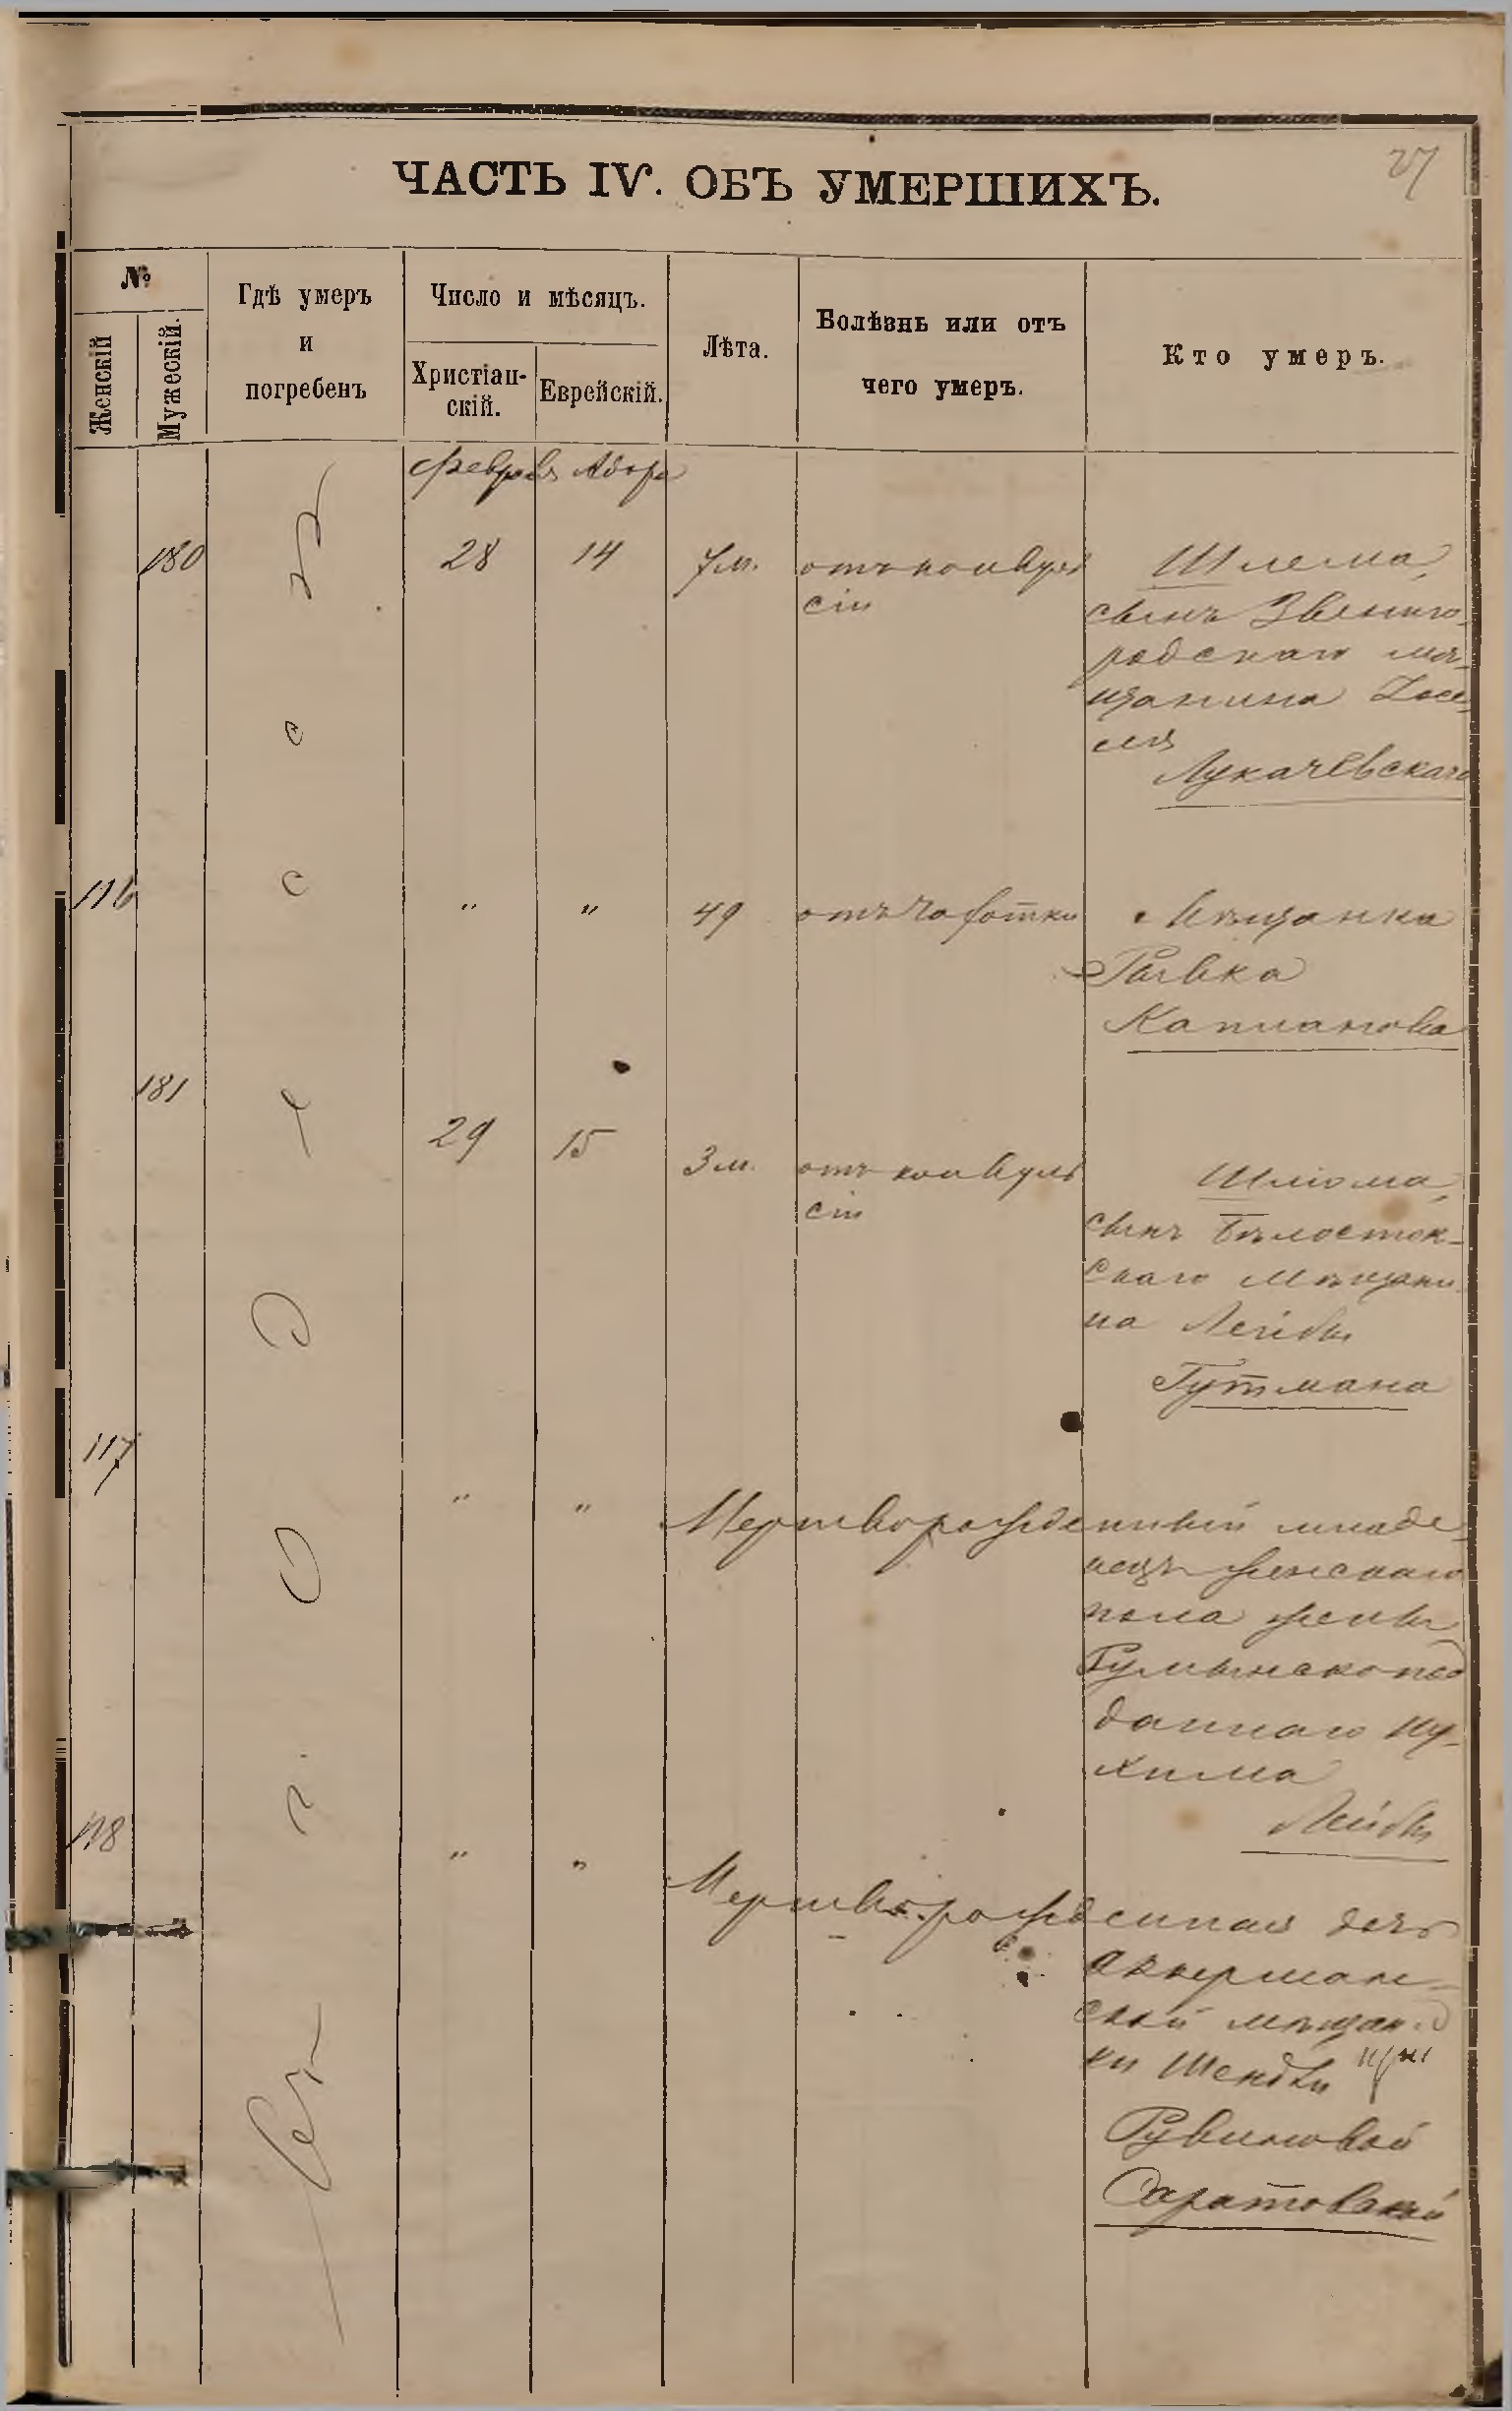 27
ЧАСТЬ IV. ОБЪ УМЕРШИХЪ.
№
Женскій
Мужескій.
Гдѣ умеръ
и
погребенъ
Число и мѣсяцъ.
Христіан-
скій.
Еврейскій.
Лѣта.
Болѣзнь или отъ
чего умеръ.
Кто умеръ.
Февраля Адора
въ г. Одессѣ
180 28 14 7 м. отъ конвуль
сіи
Шлема,
сынъ Звениго-
родскаго мѣ-
щанина Іосе-
ля
Лукачевскаго
116 " " 49 отъ чахотки
Мѣщанка
Рывка
Капланова
181 29 15 3 м. отъ конвуль
сіи
Шлiома,
сынъ Бѣлосток-
скаго мѣщани-
на Лейбы
Гутмана
117 " " Мертворожденный младе-
нецъ женскаго
пола жены
Румынскопод
даннаго Ну-
хима
Лейбы
118 " " Мертворожденная дочь
Аккерман-
ской мѣщан-
ки Шендли
Рувиновой
Саратовской